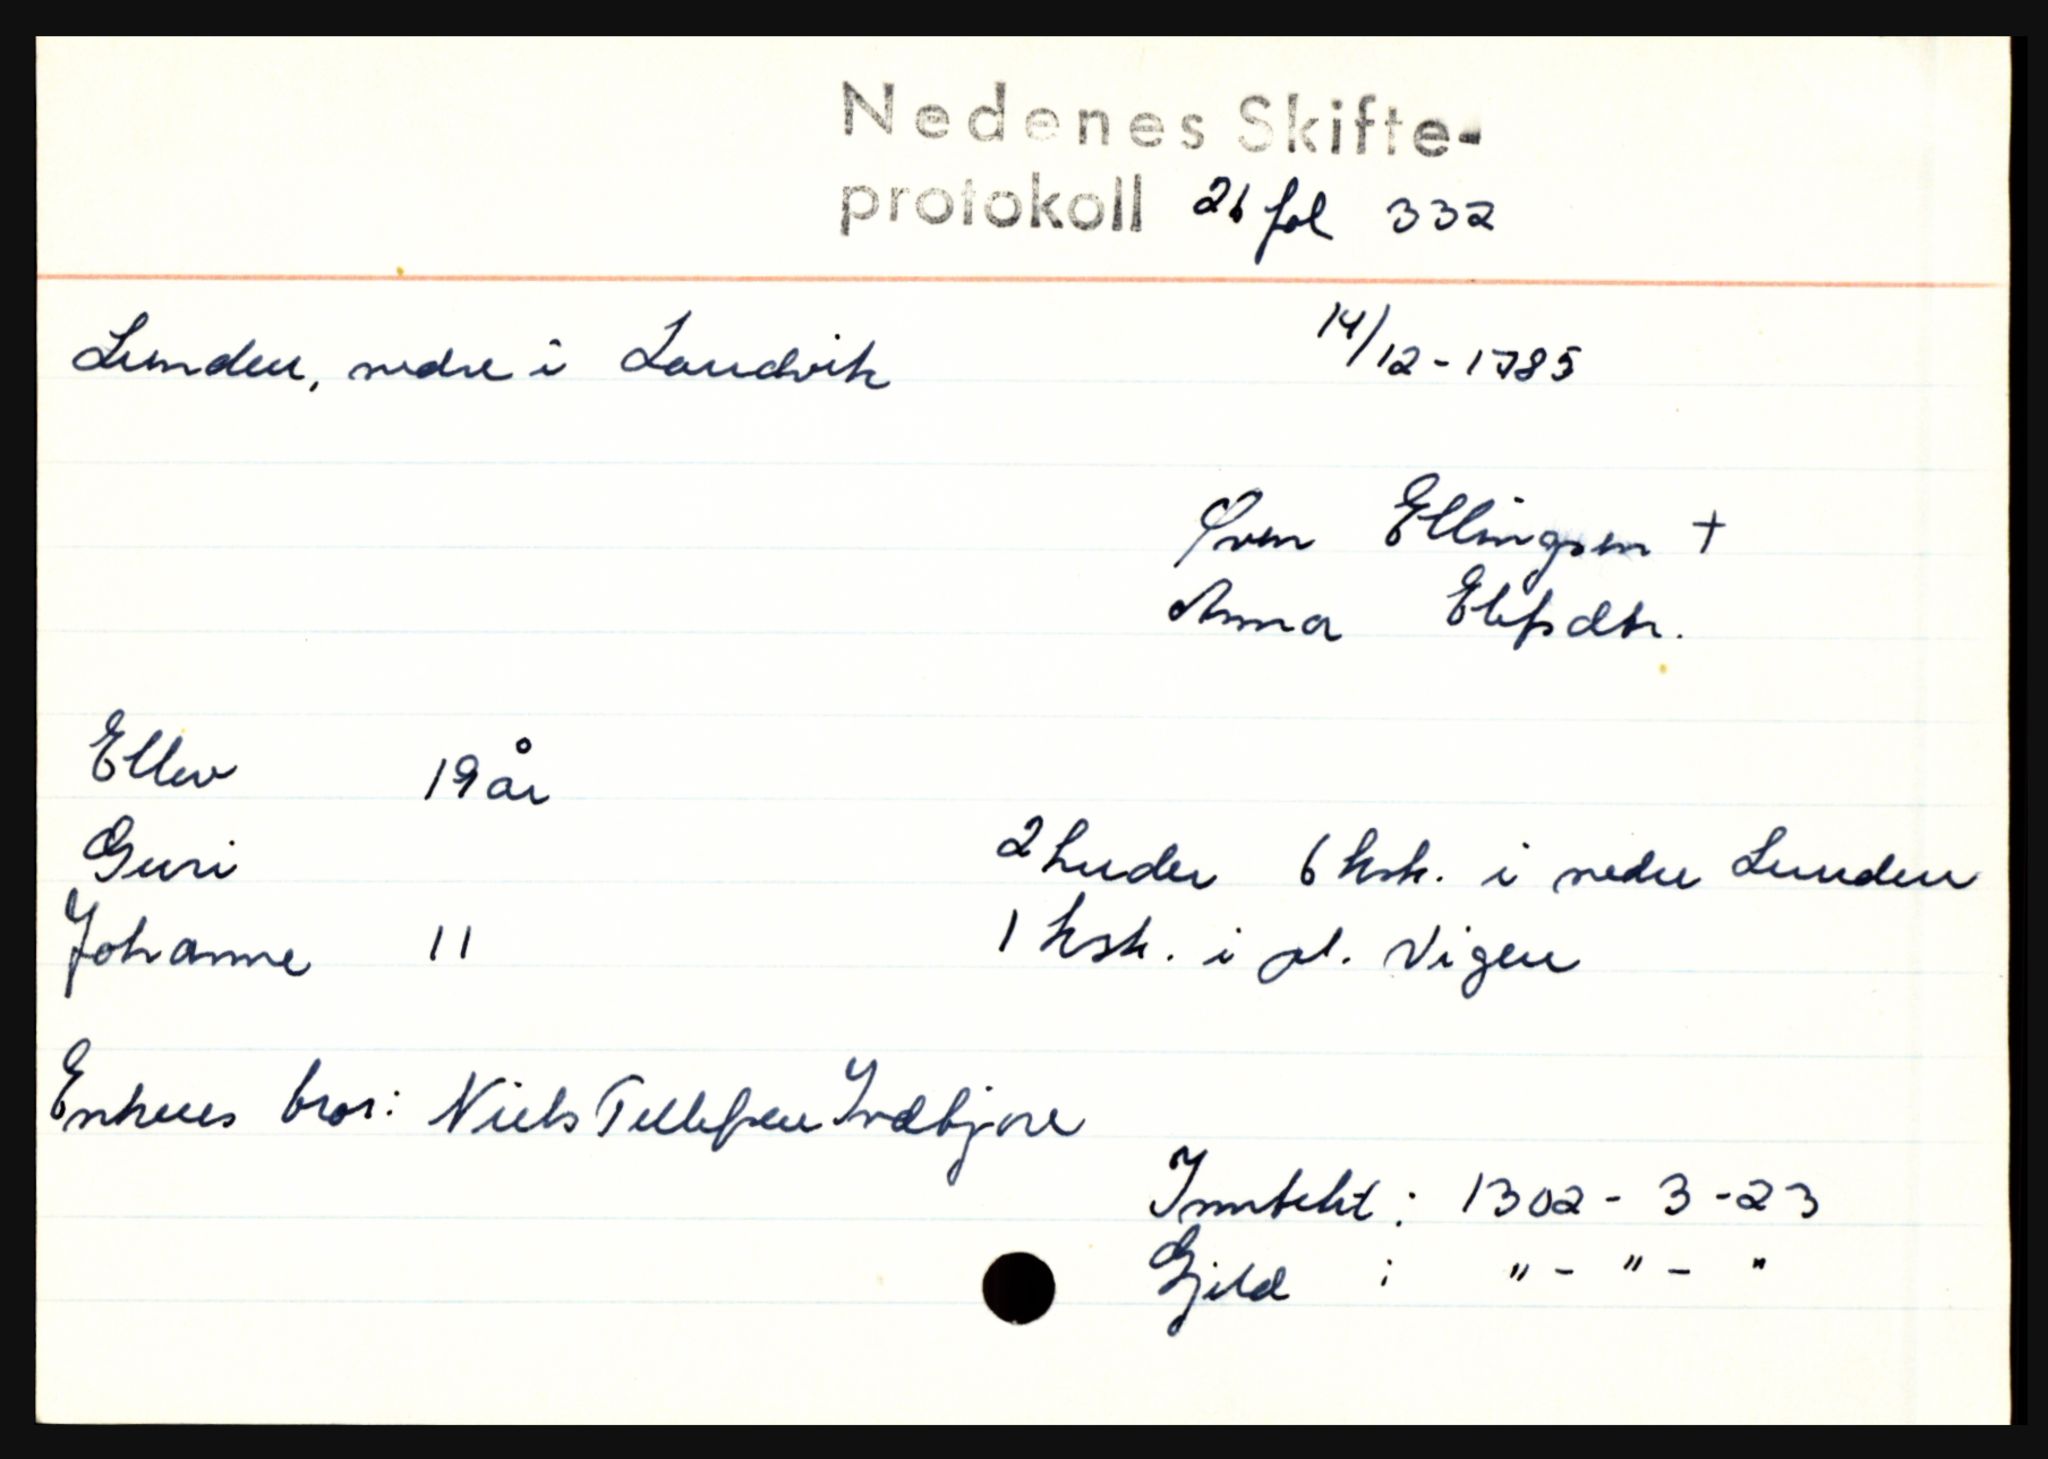 Nedenes Skifte-
protokoll 26 fol 332
Lunden, nedre i Landvik 14/12-1785
Sven Ellingsen +
Anna Elefsdtr.
Ellev 19 år
Guri 2 huder 6 ksk. i nedre Lunden
Johanne 11 1 ksk. i pl. Vigen
Enkens bror: Niels Tellefsen
Inntekt: 1302 - 3 - 23
Gjeld : " - " - "